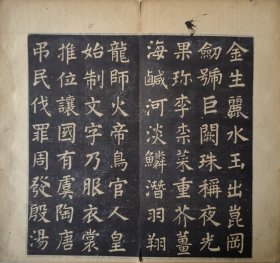 金生麗水玉出崑岡
劒號巨闕珠稱夜光
果珎李柰菜重芥薑
海鹹河淡鱗潛羽翔
龍師火帝鳥官人皇
始制文字乃服衣裳
推位讓國有虞陶唐
吊民伐罪周發殷湯